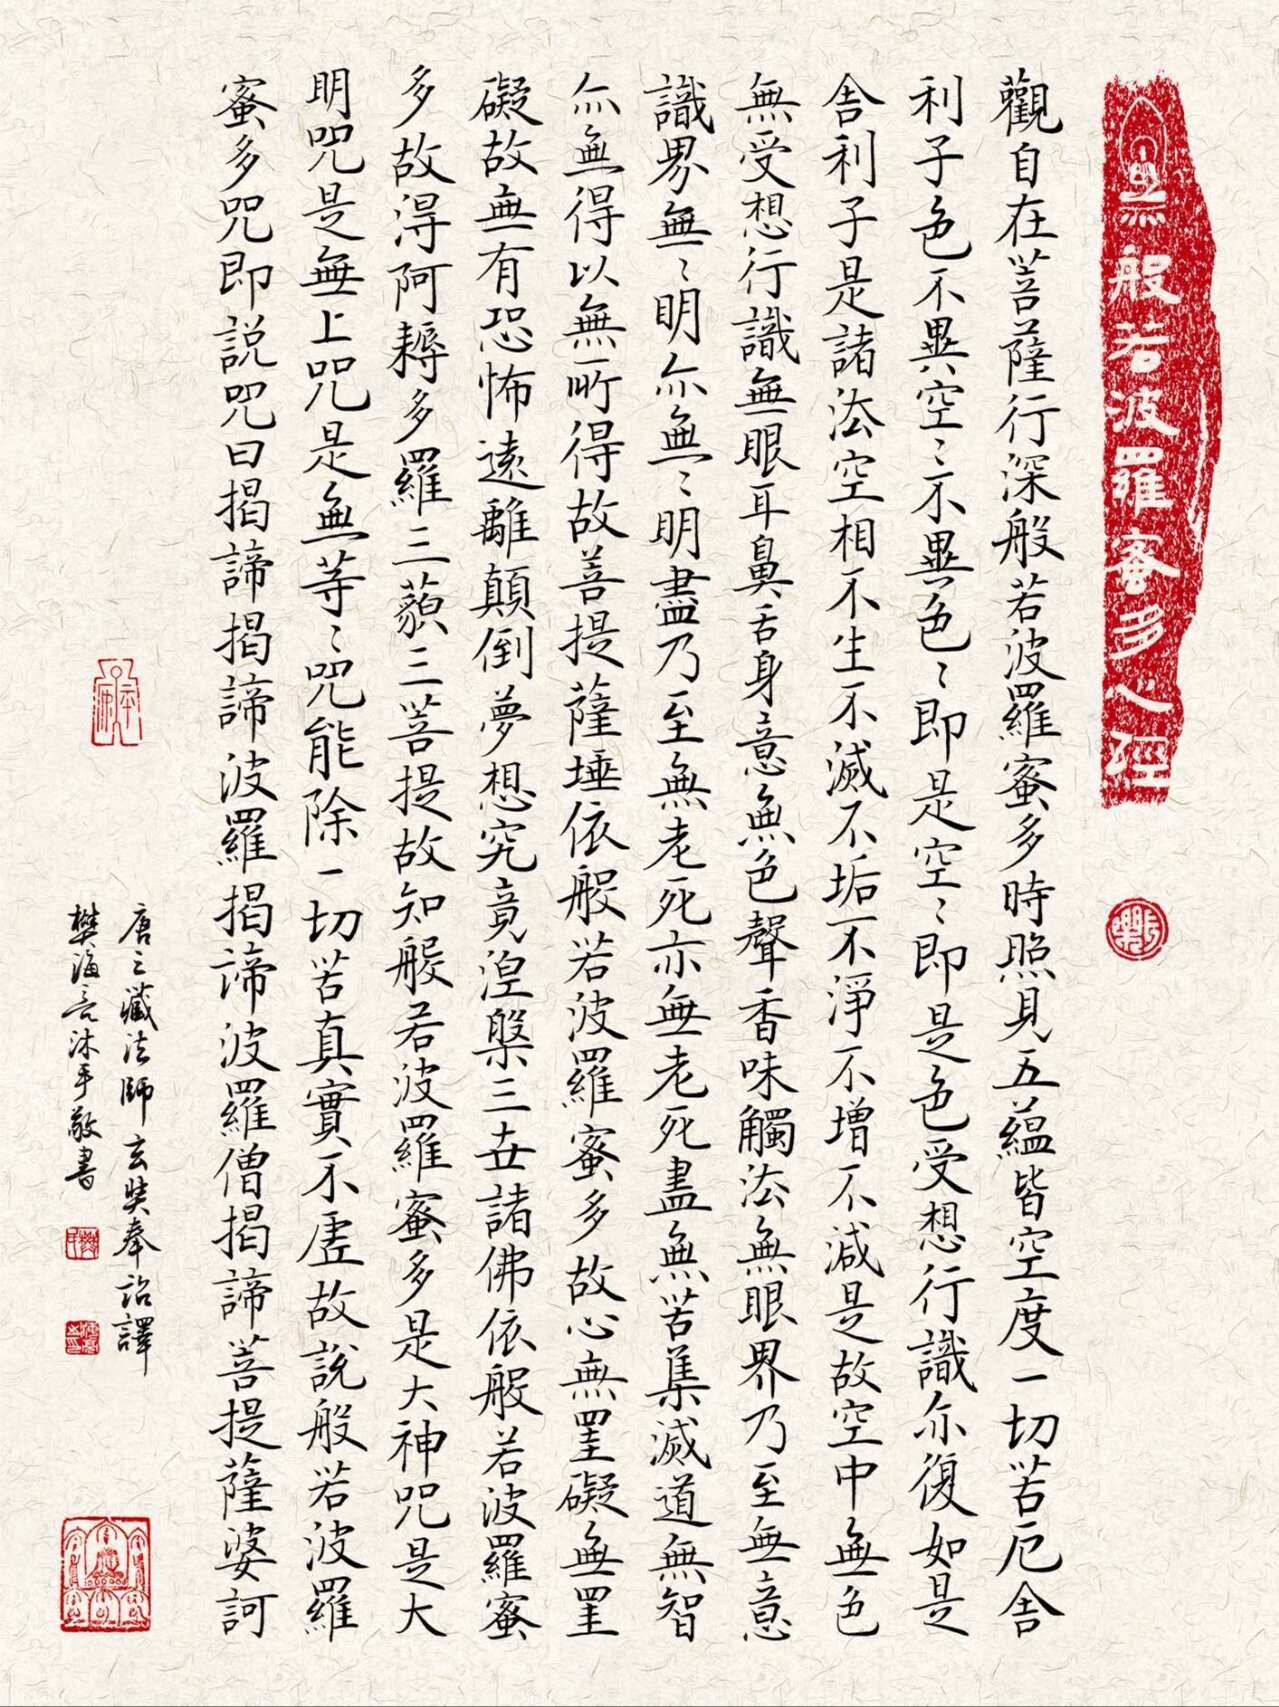 般若波羅蜜多心經
觀自在菩薩行深般若波羅蜜多時照見五蘊皆空度一切苦厄舍
利子色不異空〻不異色〻即是空〻即是色受想行識亦復如是
舍利子是諸法空相不生不滅不垢不淨不增不減是故空中無色
無受想行識無眼耳鼻舌身意無色聲香味觸法無眼界乃至無意
識界無〻明亦無〻明盡乃至無老死亦無老死盡無苦集滅道無智
亦無得以無所得故菩提薩埵依般若波羅蜜多故心無罣礙無罣
礙故無有恐怖遠離顛倒夢想究竟涅槃三世諸佛依般若波羅蜜
多故得阿耨多羅三藐三菩提故知般若波羅蜜多是大神咒是大
明咒是無上咒是無等〻咒能除一切苦真實不虛故說般若波羅
蜜多咒即說咒曰揭諦揭諦波羅揭諦波羅僧揭諦菩提薩婆訶
唐三藏法師玄奘奉詔譯
樊海亮沐手敬書